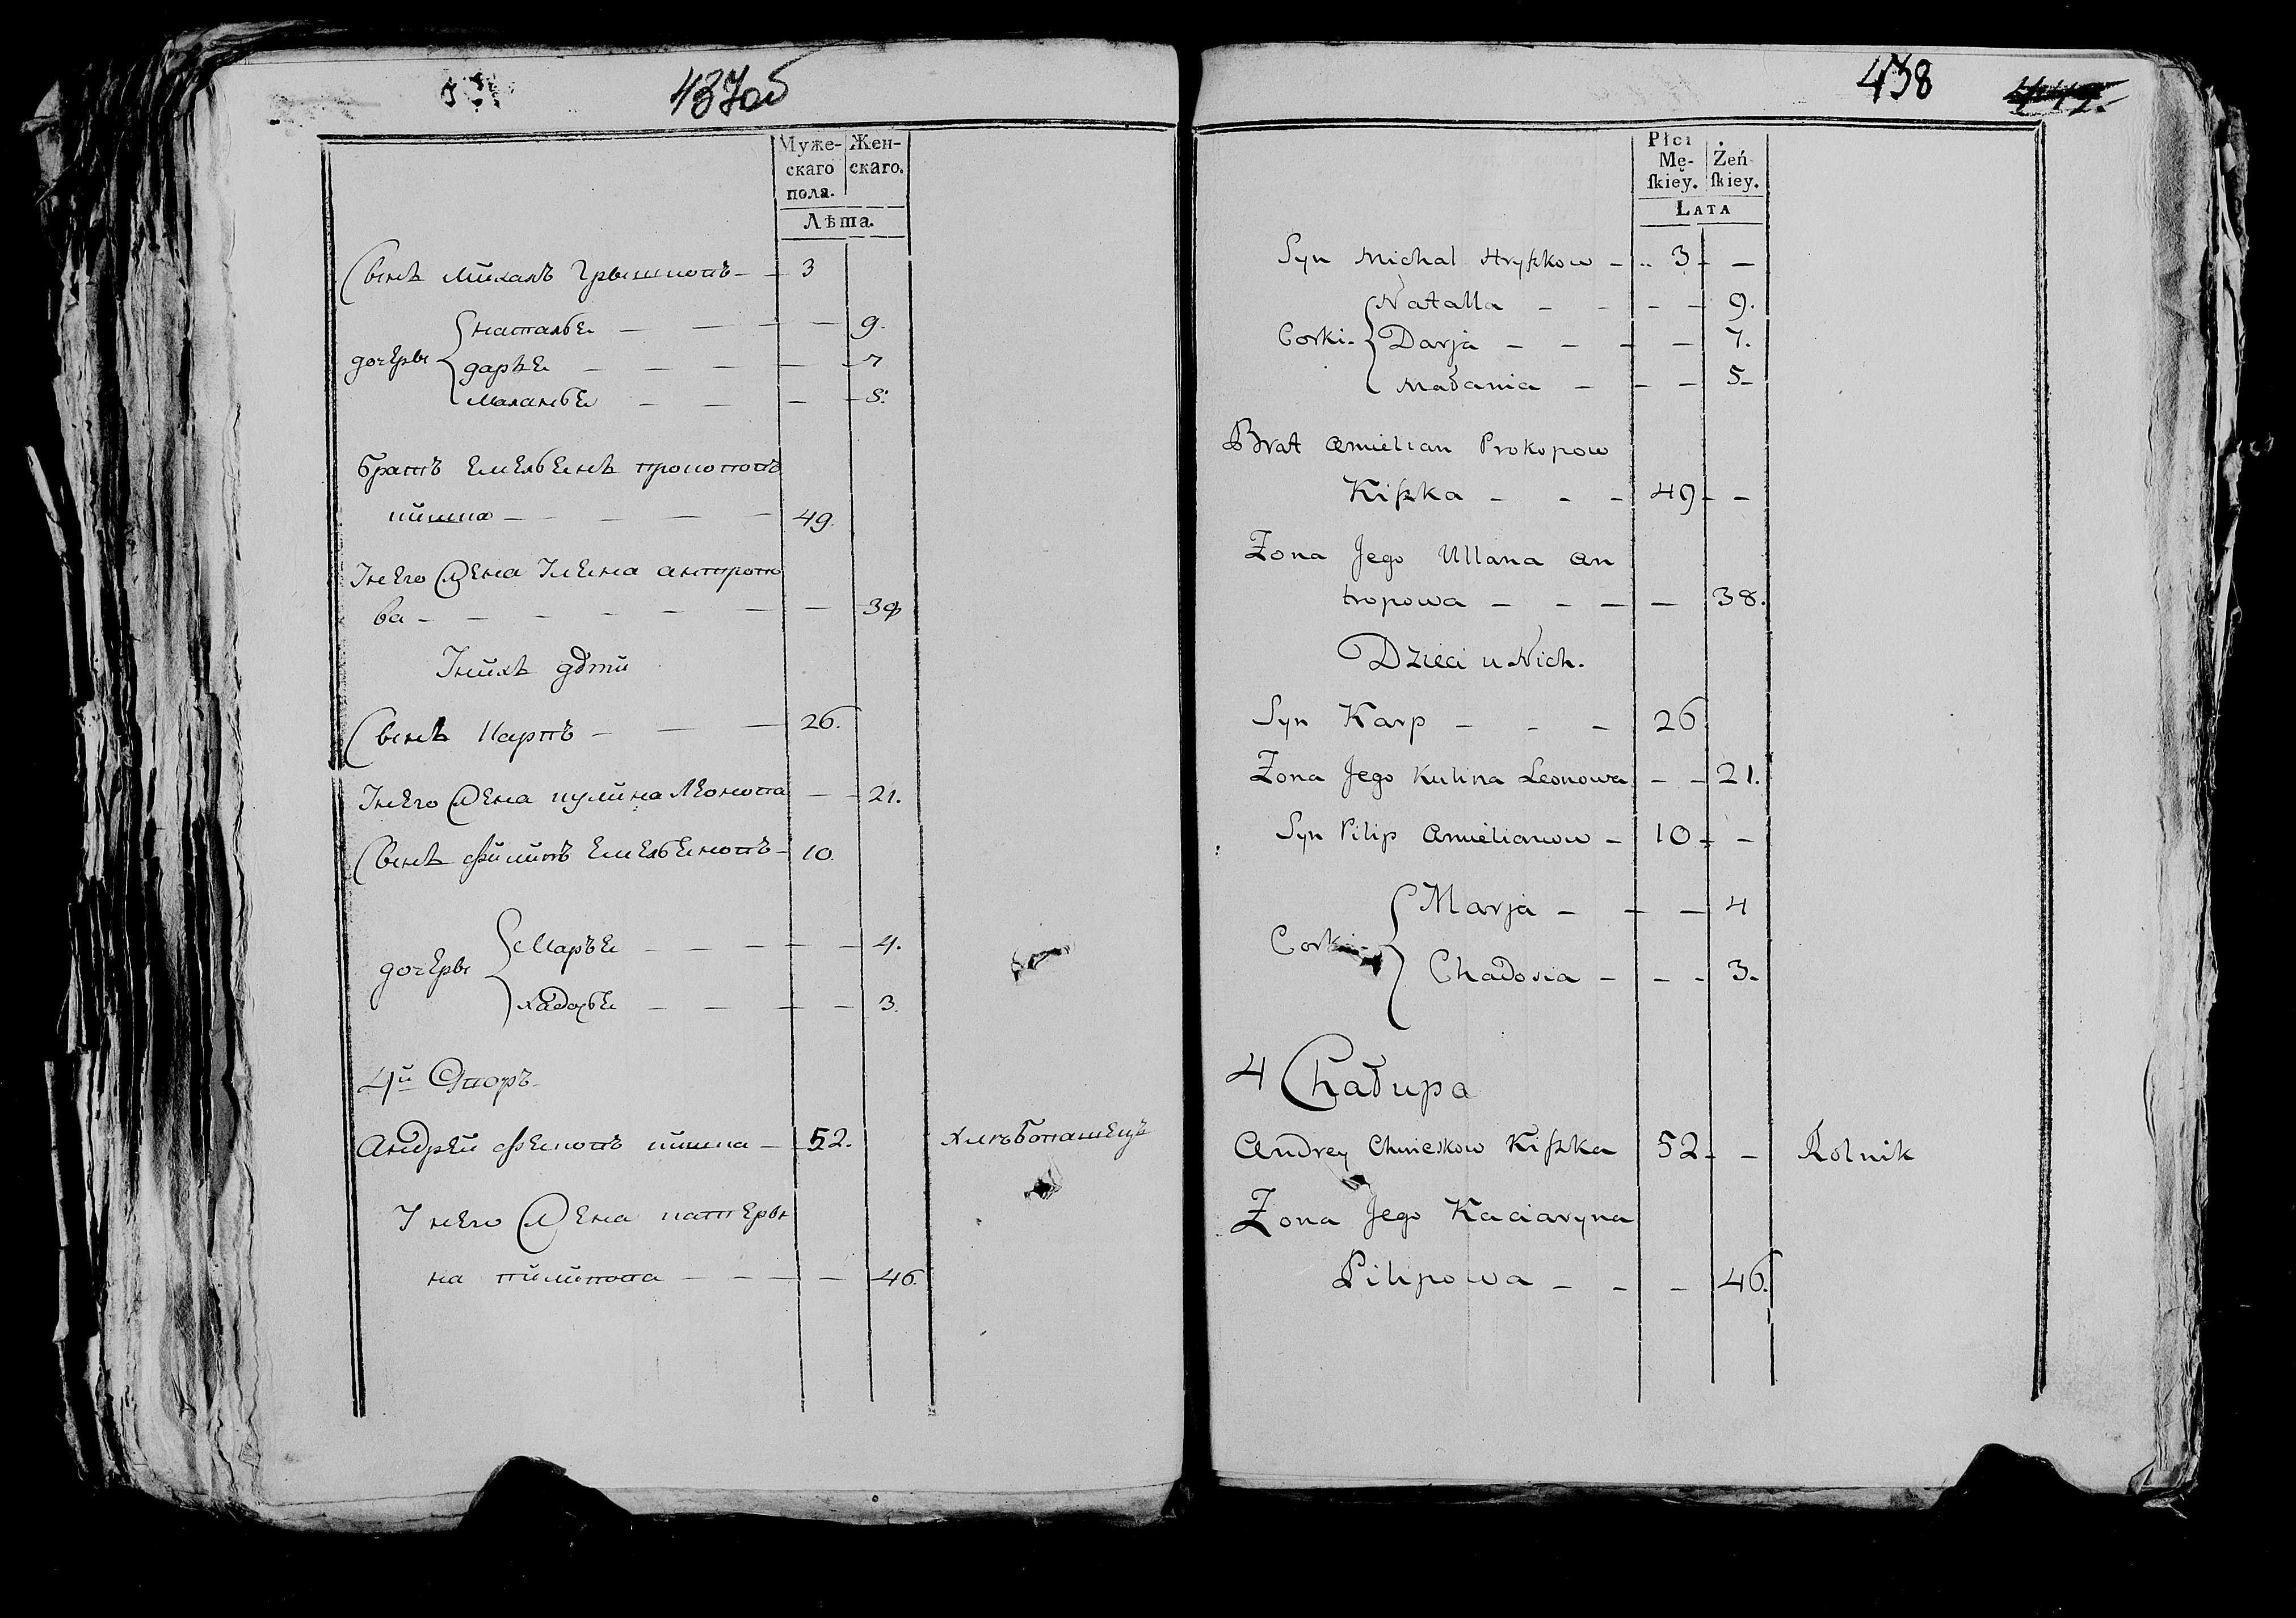 437об
Муже- Жен-
скаго скаго.
пола.
Лѣта.
Сынъ Михалъ Грышковъ — 3
Наталья — — — — 9.
дочеры Дарья — — — — 7
Маланья — — — — 5.
братъ Емельянъ Прокоповъ
Кишка — — — — 49.
У него жена Уляна Антропо
ва — — — — — — 38
У нихъ дѣти
Сынъ Карпъ — — — 26.
У него жена Кулина Леонова — — 21.
Сынъ Филипъ Емельяновъ — 10.
Марья — — — — — 4.
дочеры
Хадосья — — — — — 3.
4й Дворъ
Андрей Кишка — 52. Хлѣбопашецъ
У него жена Катеры
на Пилипова — — — — 46.
438
Płci
Mę- Żeń-
ſkiey. ſkiey.
LATA
Syn Michal Hryſzkow — 3 —
Natalla — — — — 9.
Corki. Darja — — — — 7.
Małania — — — 5—
Brat Amielian Prokopow
Kiſzka — — — 49 — —
Zona Jego Ullana An
tropowa — — — — 38.
Dzieci u Nich.
Syn Karp — — — 26
Zona Jego Kulina Leonowa — — 21.
Syn Pilip Amielianow — 10 — —
Marja — — — 4
Corki
Chadosia — — — 3—
4 Chałupa
Andrey Kiſzka 52 — — Rolnik
Zona Jego Kaciaryna
Pilipowa — — — 46.